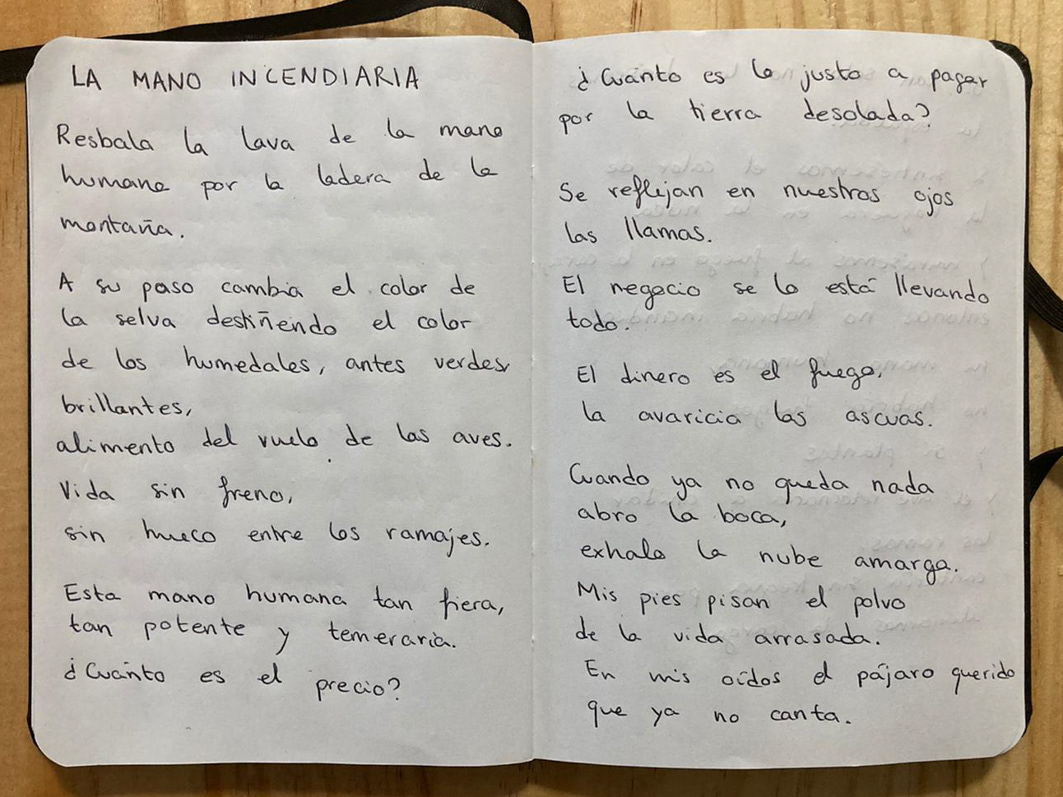 LA MANO INCENDIARIA
Resbala la lava de la mano
humana por la ladera de la
montaña.
A su paso cambia el color de
la selva destiñendo el color
de los humedales, antes verdes
brillantes,
alimento del vuelo de las aves.
Vida sin freno,
sin hueco entre los ramajes.
Esta mano humana tan fiera,
tan potente y temeraria.
¿Cuánto es el precio?
¿Cuánto es lo justo a pagar
por la tierra desolada?
Se reflejan en nuestros ojos
las llamas.
El negocio se lo está llevando
todo.
El dinero es el fuego,
la avaricia las ascuas.
Cuando ya no queda nada
abro la boca,
exhalo la nube amarga.
Mis pies pisan el polvo
de la vida arrasada.
En mis oídos el pájaro querido
que ya no canta.